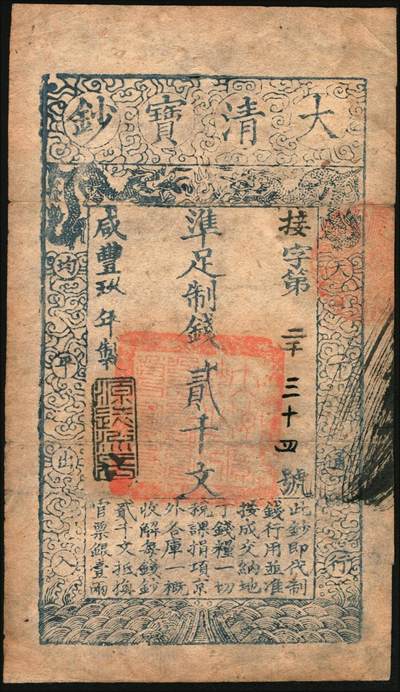 大清寶鈔
天下通行
接字第二千三十四號
準足制錢貳千文
咸豐玖年製
源遠流長
均平出入
此鈔即代制
錢行用並准
按成交納地
丁錢糧一切
稅課捐項京
外各庫一概
收解每錢鈔
貳千文抵換
官票銀壹兩